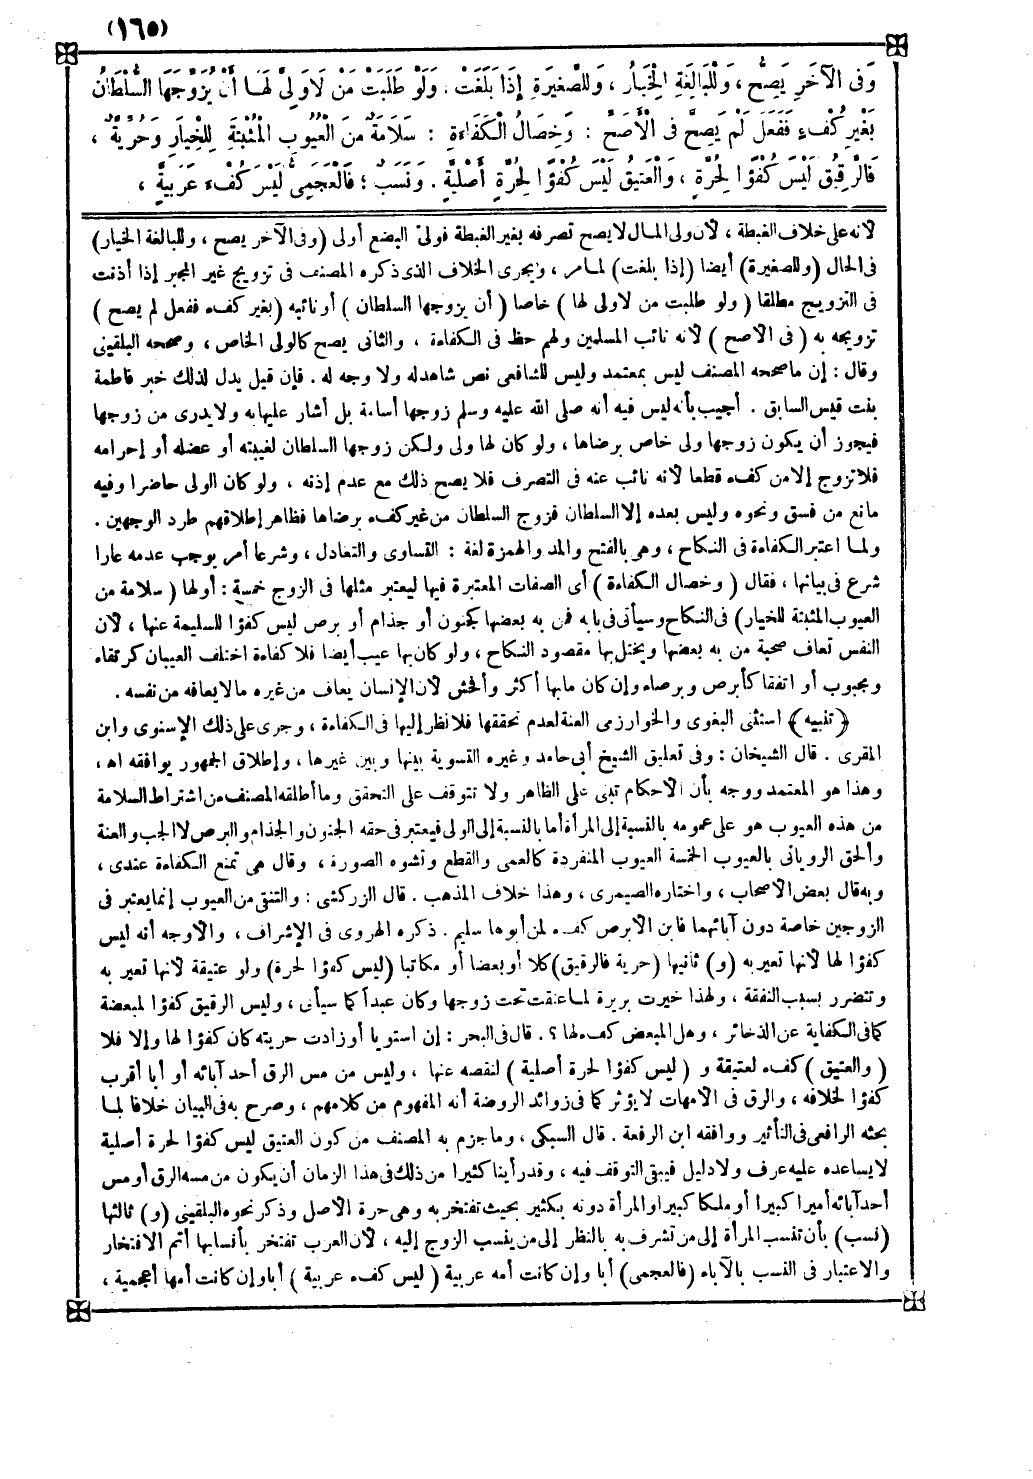 (١٦٥)
وَفِى الآخَرِ يَصِحُّ ، وَلِلْبَالِغَةِ الْخِيَارُ ، وَللصَّغِيرَةِ إِذَا بَلَغَتْ . وَلَوْ طَلَبَتْ مَنْ لَاوَلِىَّ لَهَا أَنْ يُزَوِّجَهَا السُّلْطَانُ
بِغَيْرِ كُفْءٍ فَفَعَلَ لَمْ يَصِحَّ فِى الْأَصَحِّ : وَخِصَالُ الْكَفَاءَةِ : سَلَامَةٌ مِنَ الْعُيُوبِ الْمُثْبِتَةِ لِلْخِيَارِ وَحُرِّيَّةٌ ،
فَالرَّقِيقُ لَيْسَ كُفْؤًا لِحُرَّةٍ ، وَالْعَتِيقُ لَيْسَ كُفْؤًا لِحُرَّةٍ أَصْلِيَّةٍ . وَنَسَبٌ ؛ فَالْعَجَمِىُّ لَيْسَ كُفْءَ عَرَبِيَّةٍ ،
لأنه على خلاف الغبطة ، لأن ولى المال لا يصح تصرفه بغير الغبطة فولىّ البضع أولى (وفى الآخر يصح ، وللبالغة الخيار)
فى الحال (وللصغيرة) أيضا (إذا بلغت) لما مر ، ويجرى الخلاف الذى ذكره المصنف فى تزويج غير المجبر إذا أذنت
فى التزويج مطلقا ( ولو طلبت من لاولى لها ) خاصا ( أن يزوجها السلطان ) أو نائبه (بغير كفء ففعل لم يصح )
تزويجه به ( فى الأصح ) لأنه نائب المسلمين ولهم حظ فى الكفاءة ، والثانى يصح كالولى الخاص ، وصححه البلقينى
وقال : إن ما صححه المصنف ليس بمعتمد وليس للشافعى نص شاهد له ولا وجه له . فإن قيل يدل لذلك خبر فاطمة
بنت قيس السابق . أجيب بأنه ليس فيه أنه صلى الله عليه وسلم زوجها أسامة بل أشار عليها به ولا يدرى من زوجها
فيجوز أن يكون زوجها ولى خاص برضاها ، ولو كان لها ولى ولكن زوجها السلطان لغيبته أو عضله أو إحرامه
فلا تزوج إلا من كفء قطعا لأنه نائب عنه فى التصرف فلا يصح ذلك مع عدم إذنه ، ولو كان الولى حاضرا وفيه
مانع من فسق ونحوه وليس بعده إلا السلطان فزوج السلطان من غير كفء برضاها فظاهر إطلاقهم طرد الوجهين .
ولما اعتبر الكفاءة فى النكاح ، وهى بالفتح والمد والهمزة لغة : التساوى والتعادل ، وشرعا أمر يوجب عدمه عارا
شرع فى بيانها ، فقال ( وخصال الكفاءة ) أى الصفات المعتبرة فيها ليعتبر مثلها فى الزوج خمسة : أولها ( سلامة من
العيوب المثبتة للخيار) فى النكاح وسيأتى فى بابه فمن به بعضها كجنون أو جذام أو برص ليس كفؤا للسليمة عنها ، لأن
النفس تعاف صحبة من به بعضها ويختل بها مقصود النكاح ، ولو كان بها عيب أيضا فلا كفاءة اختلف العيبان كرتقاء
ومجبوب أو اتفقا كأبرص وبرصاء وإن كان ما بها أكثر وأفحش لأن الإنسان يعاف من غيره ما لا يعافه من نفسه .
﴿ تنبيه ﴾ استثنى البغوى والخوارزمى العنة لعدم تحققها فلا نظر إليها فى الكفاءة ، وجرى على ذلك الإسنوى وابن
المقرى . قال الشيخان : وفى تعليق الشيخ أبى حامد وغيره التسوية بينها وبين غيرها ، وإطلاق الجمهور يوافقه اه ،
وهذا هو المعتمد ووجه بأن الأحكام تبنى على الظاهر ولا تتوقف على التحقق وما أطلقه المصنف من اشتراط السلامة
من هذه العيوب هو على عمومه بالنسبة إلى المرأة أما بالنسبة إلى الولى فيعتبر فى حقه الجنون والجذام والبرص لا الجب والعنة
وألحق الرويانى بالعيوب الخمسة العيوب المنفردة كالعمى والقطع وتشوه الصورة ، وقال هى تمنع الكفاءة عندى ،
وبه قال بعض الأصحاب ، واختاره الصيمرى ، وهذا خلاف المذهب . قال الزركشى : والتنقى من العيوب إنما يعتبر فى
الزوجين خاصة دون آبائهما فابن الأبرص كفء لمن أبوها سليم . ذكره الهروى فى الإشراف ، والأوجه أنه ليس
كفؤا لها لأنها تعير به (و) ثانيها (حرية فالرقيق) كلا أو بعضا أو مكاتبا (ليس كفؤا لحرة) ولو عتيقة لأنها تعير به
وتتضرر بسبب النفقة ، ولهذا خيرت بريرة لما عتقت تحت زوجها وكان عبدا كما سيأتى ، وليس الرقيق كفؤا لمبعضة
كما فى الكفاية عن الذخائر ، وهل المبعض كفء لها ؟ . قال فى البحر : إن استويا أو زادت حريته كان كفؤا لها وإلا فلا
( والعتيق ) كفء لعتيقة و ( ليس كفؤا لحرة أصلية ) لنقصه عنها ، وليس من مس الرق أحد آبائه أو أبا أقرب
كفؤا لخلافه ، والرق فى الأمهات لا يؤثر كما فى زوائد الروضة أنه المفهوم من كلامهم ، وصرح به فى البيان خلافا لما
بحثه الرافعى فى التأثير ووافقه ابن الرفعة . قال السبكى ، وما جزم به المصنف من كون العتيق ليس كفؤا لحرة أصلية
لا يساعده عليه عرف ولا دليل فيبقى التوقف فيه ، وقد رأينا كثيرا من ذلك فى هذا الزمان أن يكون من مسه الرق أو مس
أحد آبائه أميرا كبيرا أو ملكا كبيرا والمرأة دونه بكثير بحيث تفتخر به وهى حرة الأصل وذكر نحوه البلقينى (و) ثالثها
(نسب) بأن تنسب المرأة إلى من تشرف به بالنظر إلى من ينسب الزوج إليه ، لأن العرب تفتخر بأنسابها أتم الافتخار
والاعتبار فى النسب بالآباء (فالعجمى) أبا وإن كانت أمه عربية ( ليس كفء عربية ) أبا وإن كانت أمها أعجمية ،